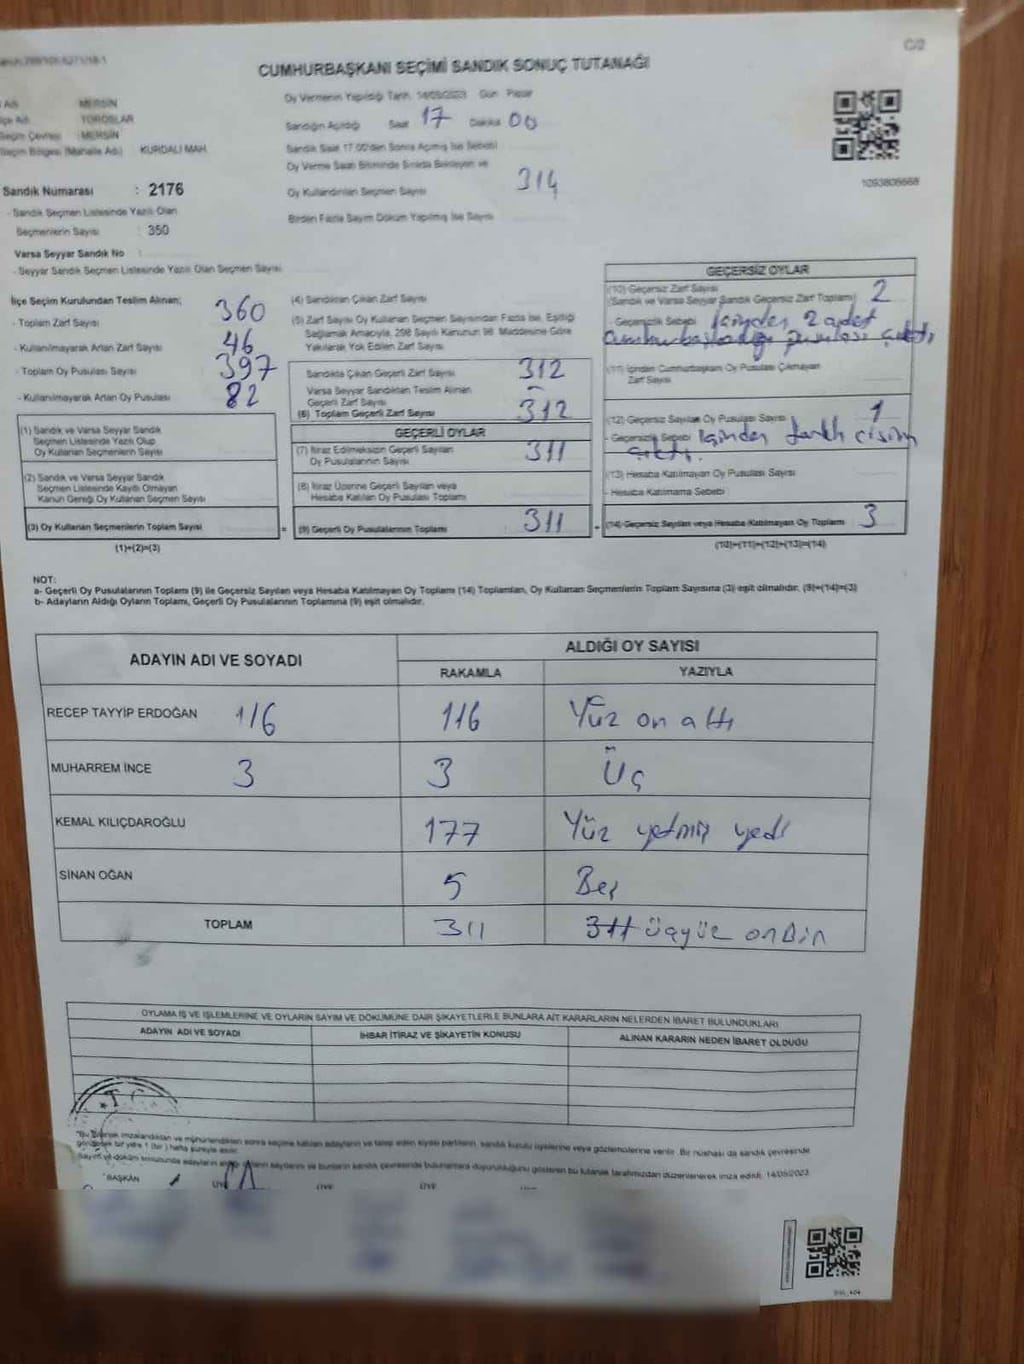 C/2
CUMHURBAŞKANI SEÇİMİ SANDIK SONUÇ TUTANAĞI
Adı : MERSİN
İlçe Adı : TOROSLAR
Seçim Çevresi : MERSİN
Seçim Bölgesi (Mahalle Adı) KURDALI MAH.
Sandık Numarası : 2176
- Sandık Seçmen Listesinde Yazılı Olan
Seçmenlerin Sayısı : 350
Varsa Seyyar Sandık No :
- Seyyar Sandık Seçmen Listesinde Yazılı Olan Seçmen Sayısı
Oy Vermenin Yapıldığı Tarih: 14/05/2023 Gün: Pazar
Sandığın Açıldığı Saat 17 Dakika 00
Sandık Saat 17:00'den Sonra Açılmış İse Sebebi
Oy Verme Saati Bitiminde Sırada Bekleyen ve
Oy Kullandırılan Seçmen Sayısı 314
Birden Fazla Sayım Döküm Yapılmış İse Sayısı
1093806668
İlçe Seçim Kurulundan Teslim Alınan;
- Toplam Zarf Sayısı 360
- Kullanılmayarak Artan Zarf Sayısı 46
- Toplam Oy Pusulası Sayısı 397
- Kullanılmayarak Artan Oy Pusulası 82
(1) Sandık ve Varsa Seyyar Sandık
Seçmen Listesinde Yazılı Olup
Oy Kullanan Seçmenlerin Sayısı
(2) Sandık ve Varsa Seyyar Sandık
Seçmen Listesinde Kayıtlı Olmayan
Kanun Gereği Oy Kullanan Seçmen Sayısı
(3) Oy Kullanan Seçmenlerin Toplam Sayısı =
(1)+(2)=(3)
(4) Sandıktan Çıkan Zarf Sayısı
(5) Zarf Sayısı Oy Kullanan Seçmen Sayısından Fazla İse, Eşitliği
Sağlamak Amacıyla, 298 Sayılı Kanunun 98. Maddesine Göre
Yakılarak Yok Edilen Zarf Sayısı
Sandıkta Çıkan Geçerli Zarf Sayısı 312
Varsa Seyyar Sandıktan Teslim Alınan
Geçerli Zarf Sayısı -
(6) Toplam Geçerli Zarf Sayısı 312
GEÇERLİ OYLAR
(7) İtiraz Edilmeksizin Geçerli Sayılan
Oy Pusulalarının Sayısı 311
(8) İtiraz Üzerine Geçerli Sayılan veya
Hesaba Katılan Oy Pusulası Toplamı
(9) Geçerli Oy Pusulalarının Toplamı 311 +
GEÇERSİZ OYLAR
(10) Geçersiz Zarf Sayısı
(Sandık ve Varsa Seyyar Sandık Geçersiz Zarf Toplamı) 2
- Geçersizlik Sebebi İçinden 2 adet
Cumhurbaşkanlığı pusulası çıktı
(11) İçinden Cumhurbaşkanı Oy Pusulası Çıkmayan
Zarf Sayısı
(12) Geçersiz Sayılan Oy Pusulası Sayısı 1
- Geçersizlik Sebebi İçinden farklı cisim
çıktı.
(13) Hesaba Katılmayan Oy Pusulası Sayısı
- Hesaba Katılmama Sebebi
(14) Geçersiz Sayılan veya Hesaba Katılmayan Oy Toplamı 3
(10)+(11)+(12)+(13)=(14)
NOT:
a- Geçerli Oy Pusulalarının Toplamı (9) ile Geçersiz Sayılan veya Hesaba Katılmayan Oy Toplamı (14) Toplamları, Oy Kullanan Seçmenlerin Toplam Sayısına (3) eşit olmalıdır. (9)+(14)=(3)
b- Adayların Aldığı Oyların Toplamı, Geçerli Oy Pusulalarının Toplamına (9) eşit olmalıdır.
ADAYIN ADI VE SOYADI ALDIĞI OY SAYISI
RAKAMLA YAZIYLA
RECEP TAYYİP ERDOĞAN 116 116 Yüz on altı
MUHARREM İNCE 3 3 Üç
KEMAL KILIÇDAROĞLU 177 Yüz yetmiş yedi
SİNAN OĞAN 5 Beş
TOPLAM 311 311 üçyüz onbir
OYLAMA İŞ VE İŞLEMLERİNE VE OYLARIN SAYIM VE DÖKÜMÜNE DAİR ŞİKAYETLERLE BUNLARA AİT KARARLARIN NELERDEN İBARET BULUNDUKLARI
ADAYIN ADI VE SOYADI İHBAR İTİRAZ VE ŞİKAYETİN KONUSU ALINAN KARARIN NEDEN İBARET OLDUĞU
T.C.
"Bu tutanak imzalandıktan ve mühürlendikten sonra seçime katılan adayların ve talep eden siyasi partilerin, sandık kurulu üyelerine veya gözlemcilerine verilir. Bir nüshası da sandık çevresinde
görülecek bir yere 1 (bir) hafta süreyle asılır.
BAŞKAN ÜYE ÜYE ÜYE